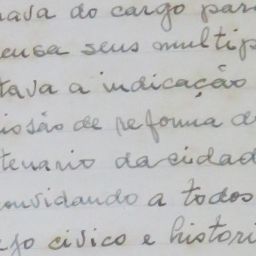 nava do cargo para
ensa seus multip
tava a indicação
issão de reforma d
tenario da cidad
convidando a todos
civico e histori